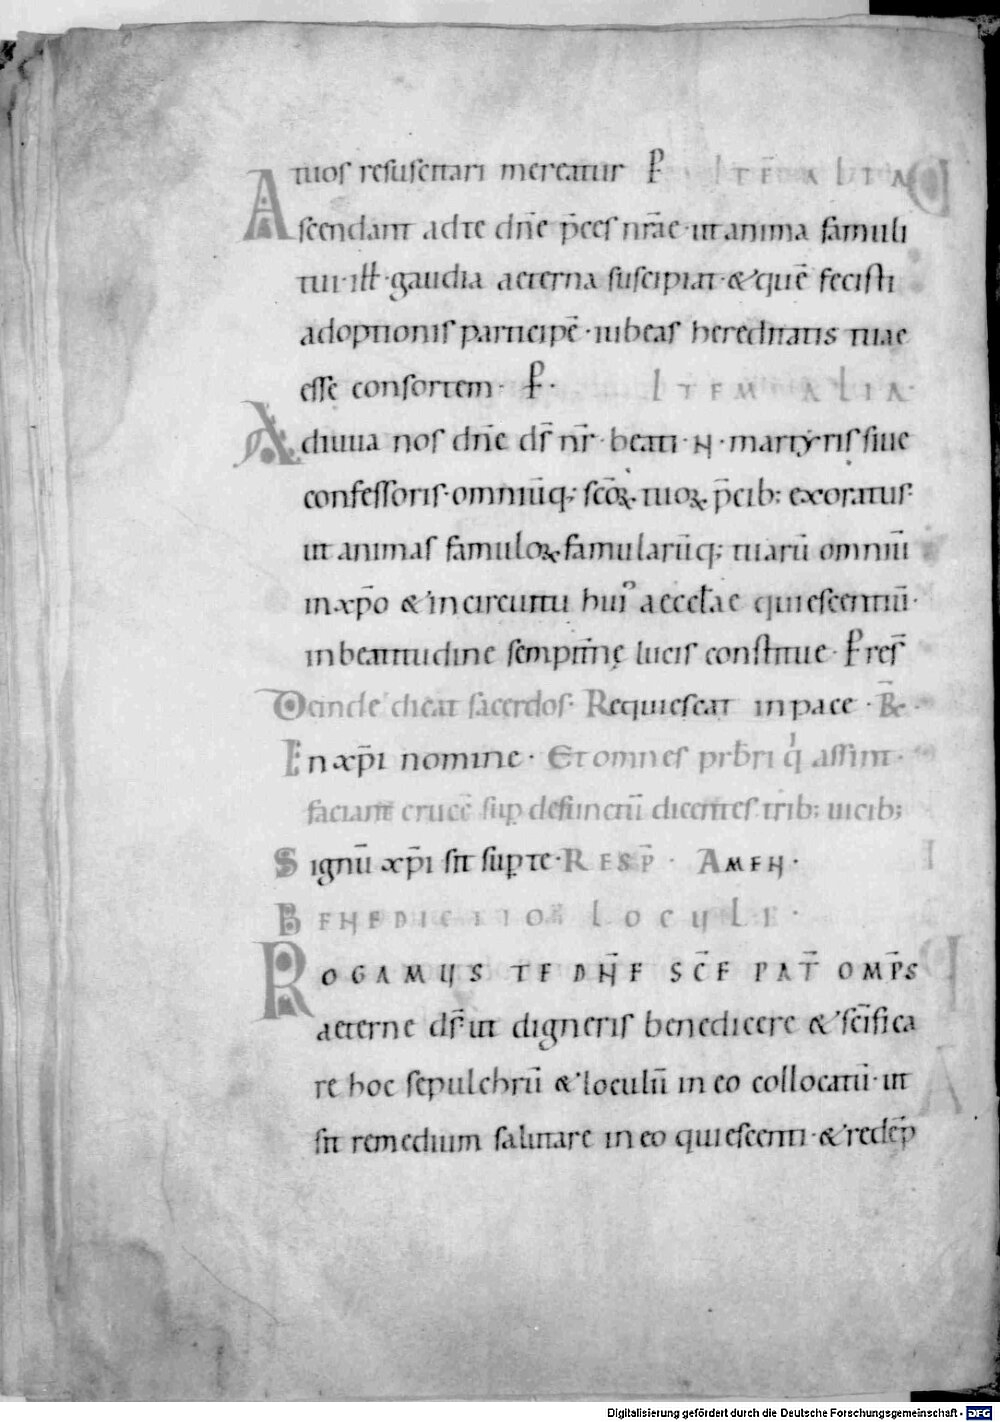 tuos resuscitari mereatur P ITĒ ALIA
Ascendant ad te dn̄e p̄ces nr̄ae · ut anima famuli
tui · ilł · gaudia aeterna suscipiat · & quē fecisti
adoptionis participē · iubeas hereditatis tuae
esse consortem · P · ITEM ALIA ·
Adiuua nos dn̄e ds̄ nr̄ · beati · N · martyris siue
confessoris · omniūq; sc̄oꝝ tuoꝝ p̄cib; exoratus ·
ut animas famuloꝝ famularūq; tuarū omniū
in xp̄o & in circuitu hui᾽ aeccłae quiescentiū ·
in beatitudine sempitn̄ę lucis constitue · P res̄
Deinde dicat sacerdos · Requiescat in pace · R̄
In xp̄i nomine · Et omnes prb̄ri q̇ assint ·
faciant crucē sup̱ defunctū dicentes trib; uicib;
Signū xp̄i sit sup̱ te · RESP̄ · AMEN ·
BENEDICTIO LOCULI ·
ROGAMUS TE DN̄E SC̄E PAT̄ OMP̄S
aeterne ds̄ · ut digneris benedicere & sc̄ifica
re hoc sepulchrū & loculū in eo collocatū · ut
sit remedium salutare in eo quiescenti · & redēp
Digitalisierung gefördert durch die Deutsche Forschungsgemeinschaft - DFG